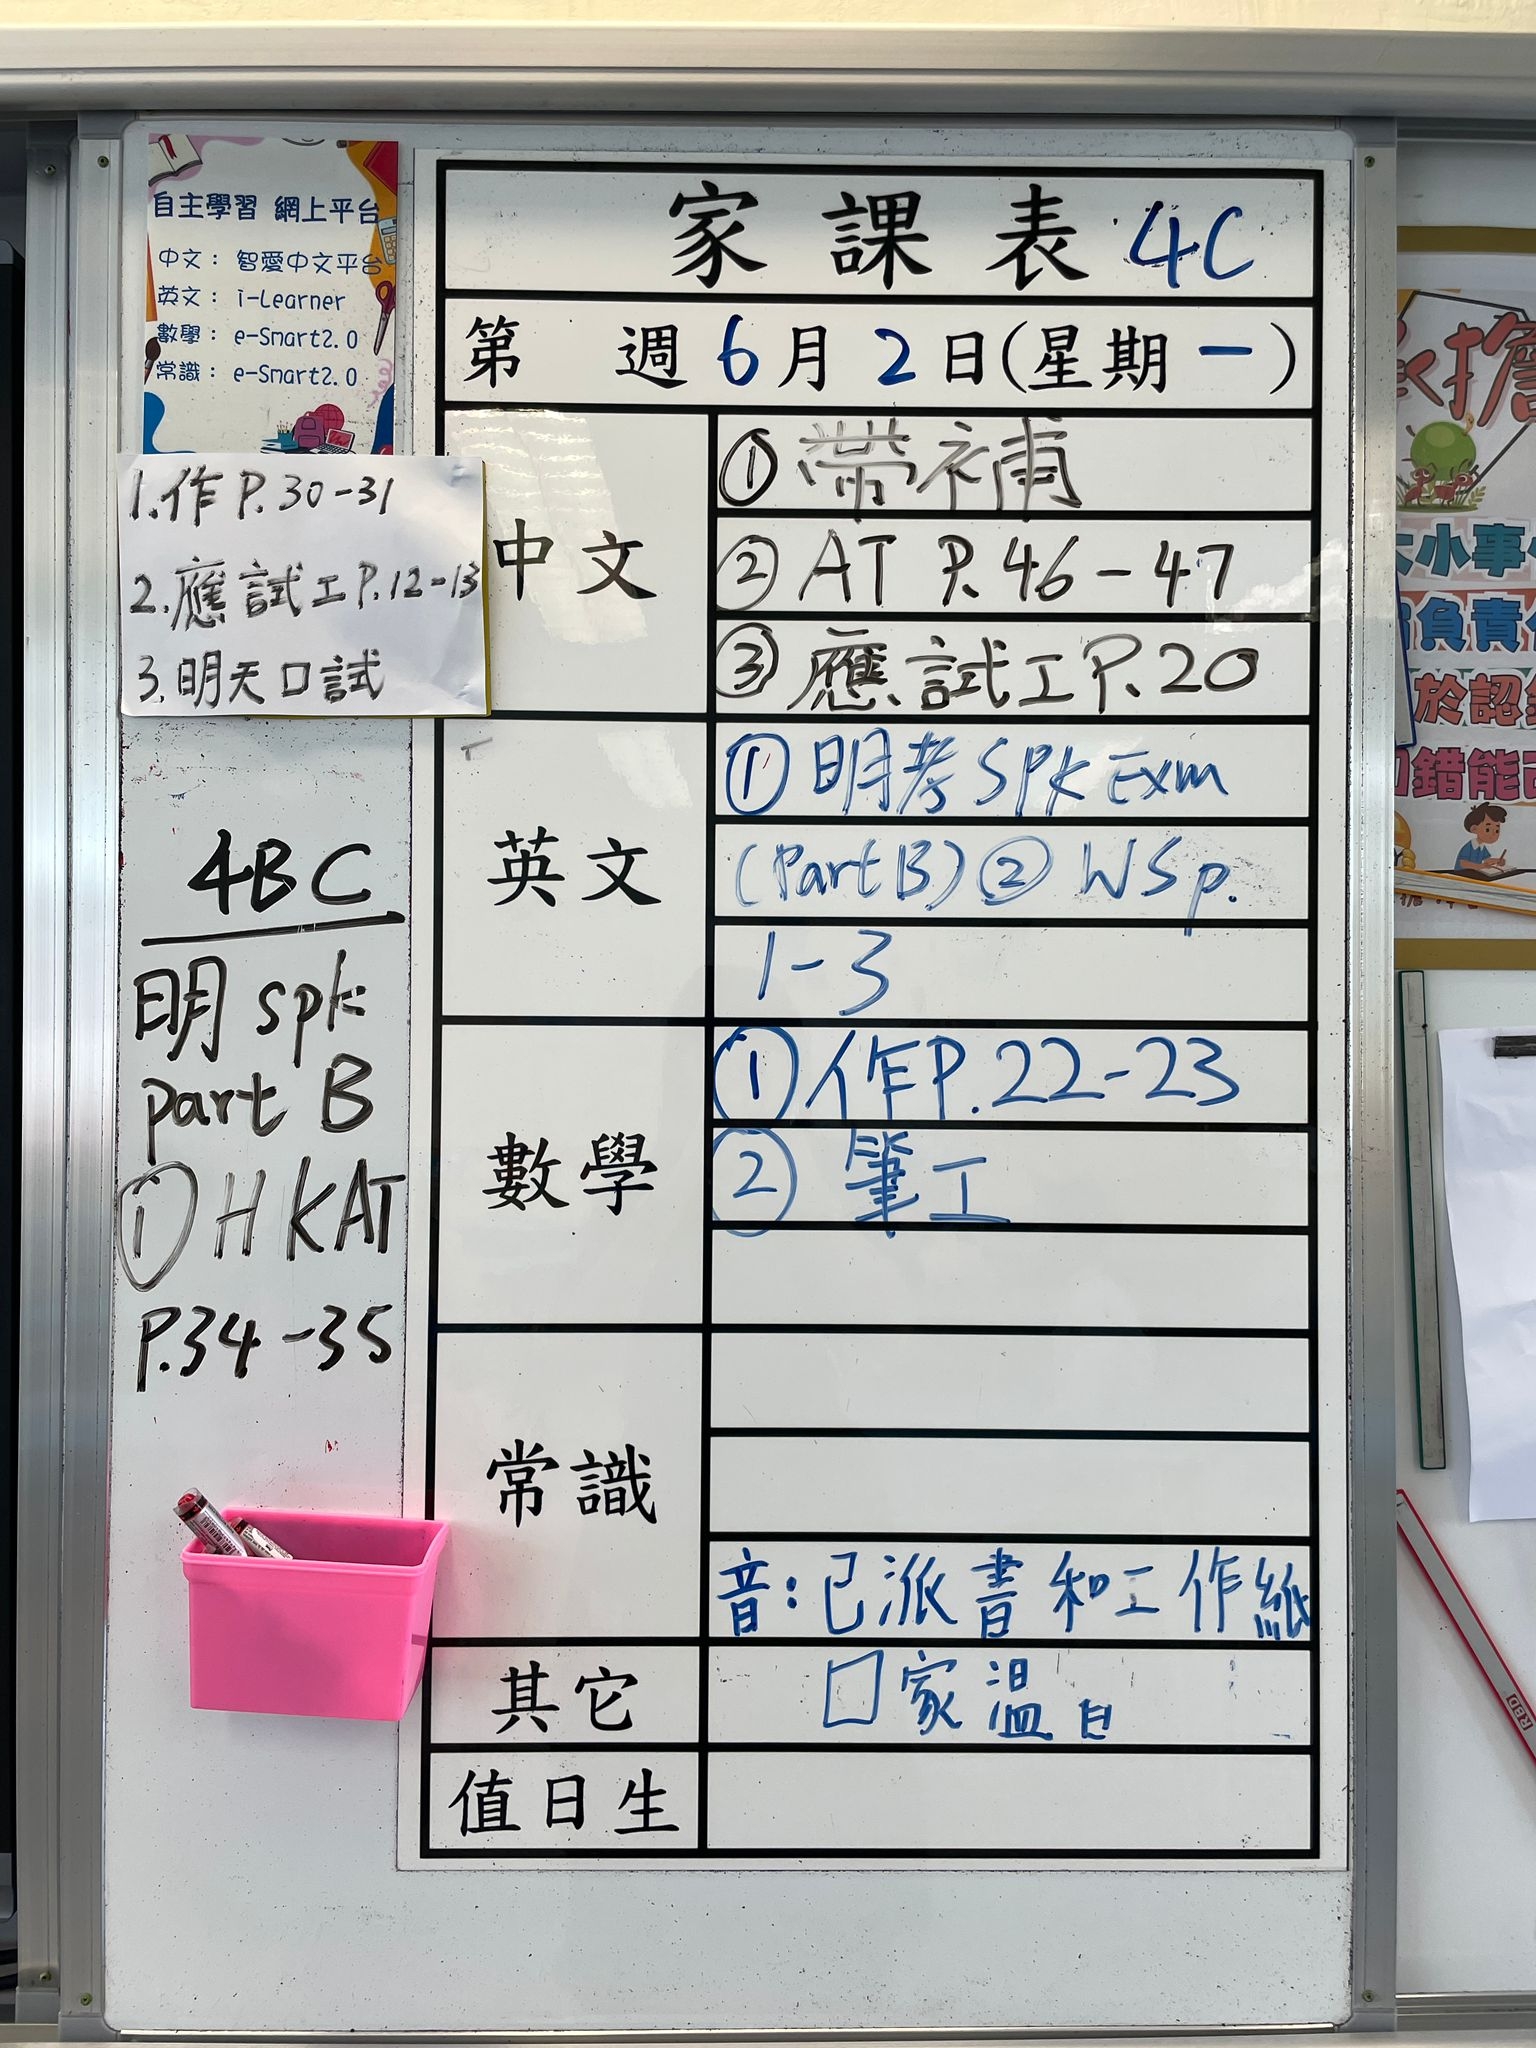 自主學習 網上平台
中文： 智愛中文平台
英文： i-Learner
數學： e-Smart2.0
常識： e-Smart2.0
1.作 P.30-31
2.應試工P.12-13
3.明天口試
4BC
明 spk
part B
① HKAT
P.34-35
家課表 4C
第 週 6月2日(星期一)
中文
① 帶補
② AT P.46-47
③ 應試工P.20
英文
① 明考 Spk Exm
(Part B) ② WS p.
1-3
數學
① 作P.22-23
② 筆工
常識
音:已派書和工作紙
其它
家溫日
值日生
大小事
負責
於認
錯能
KBD